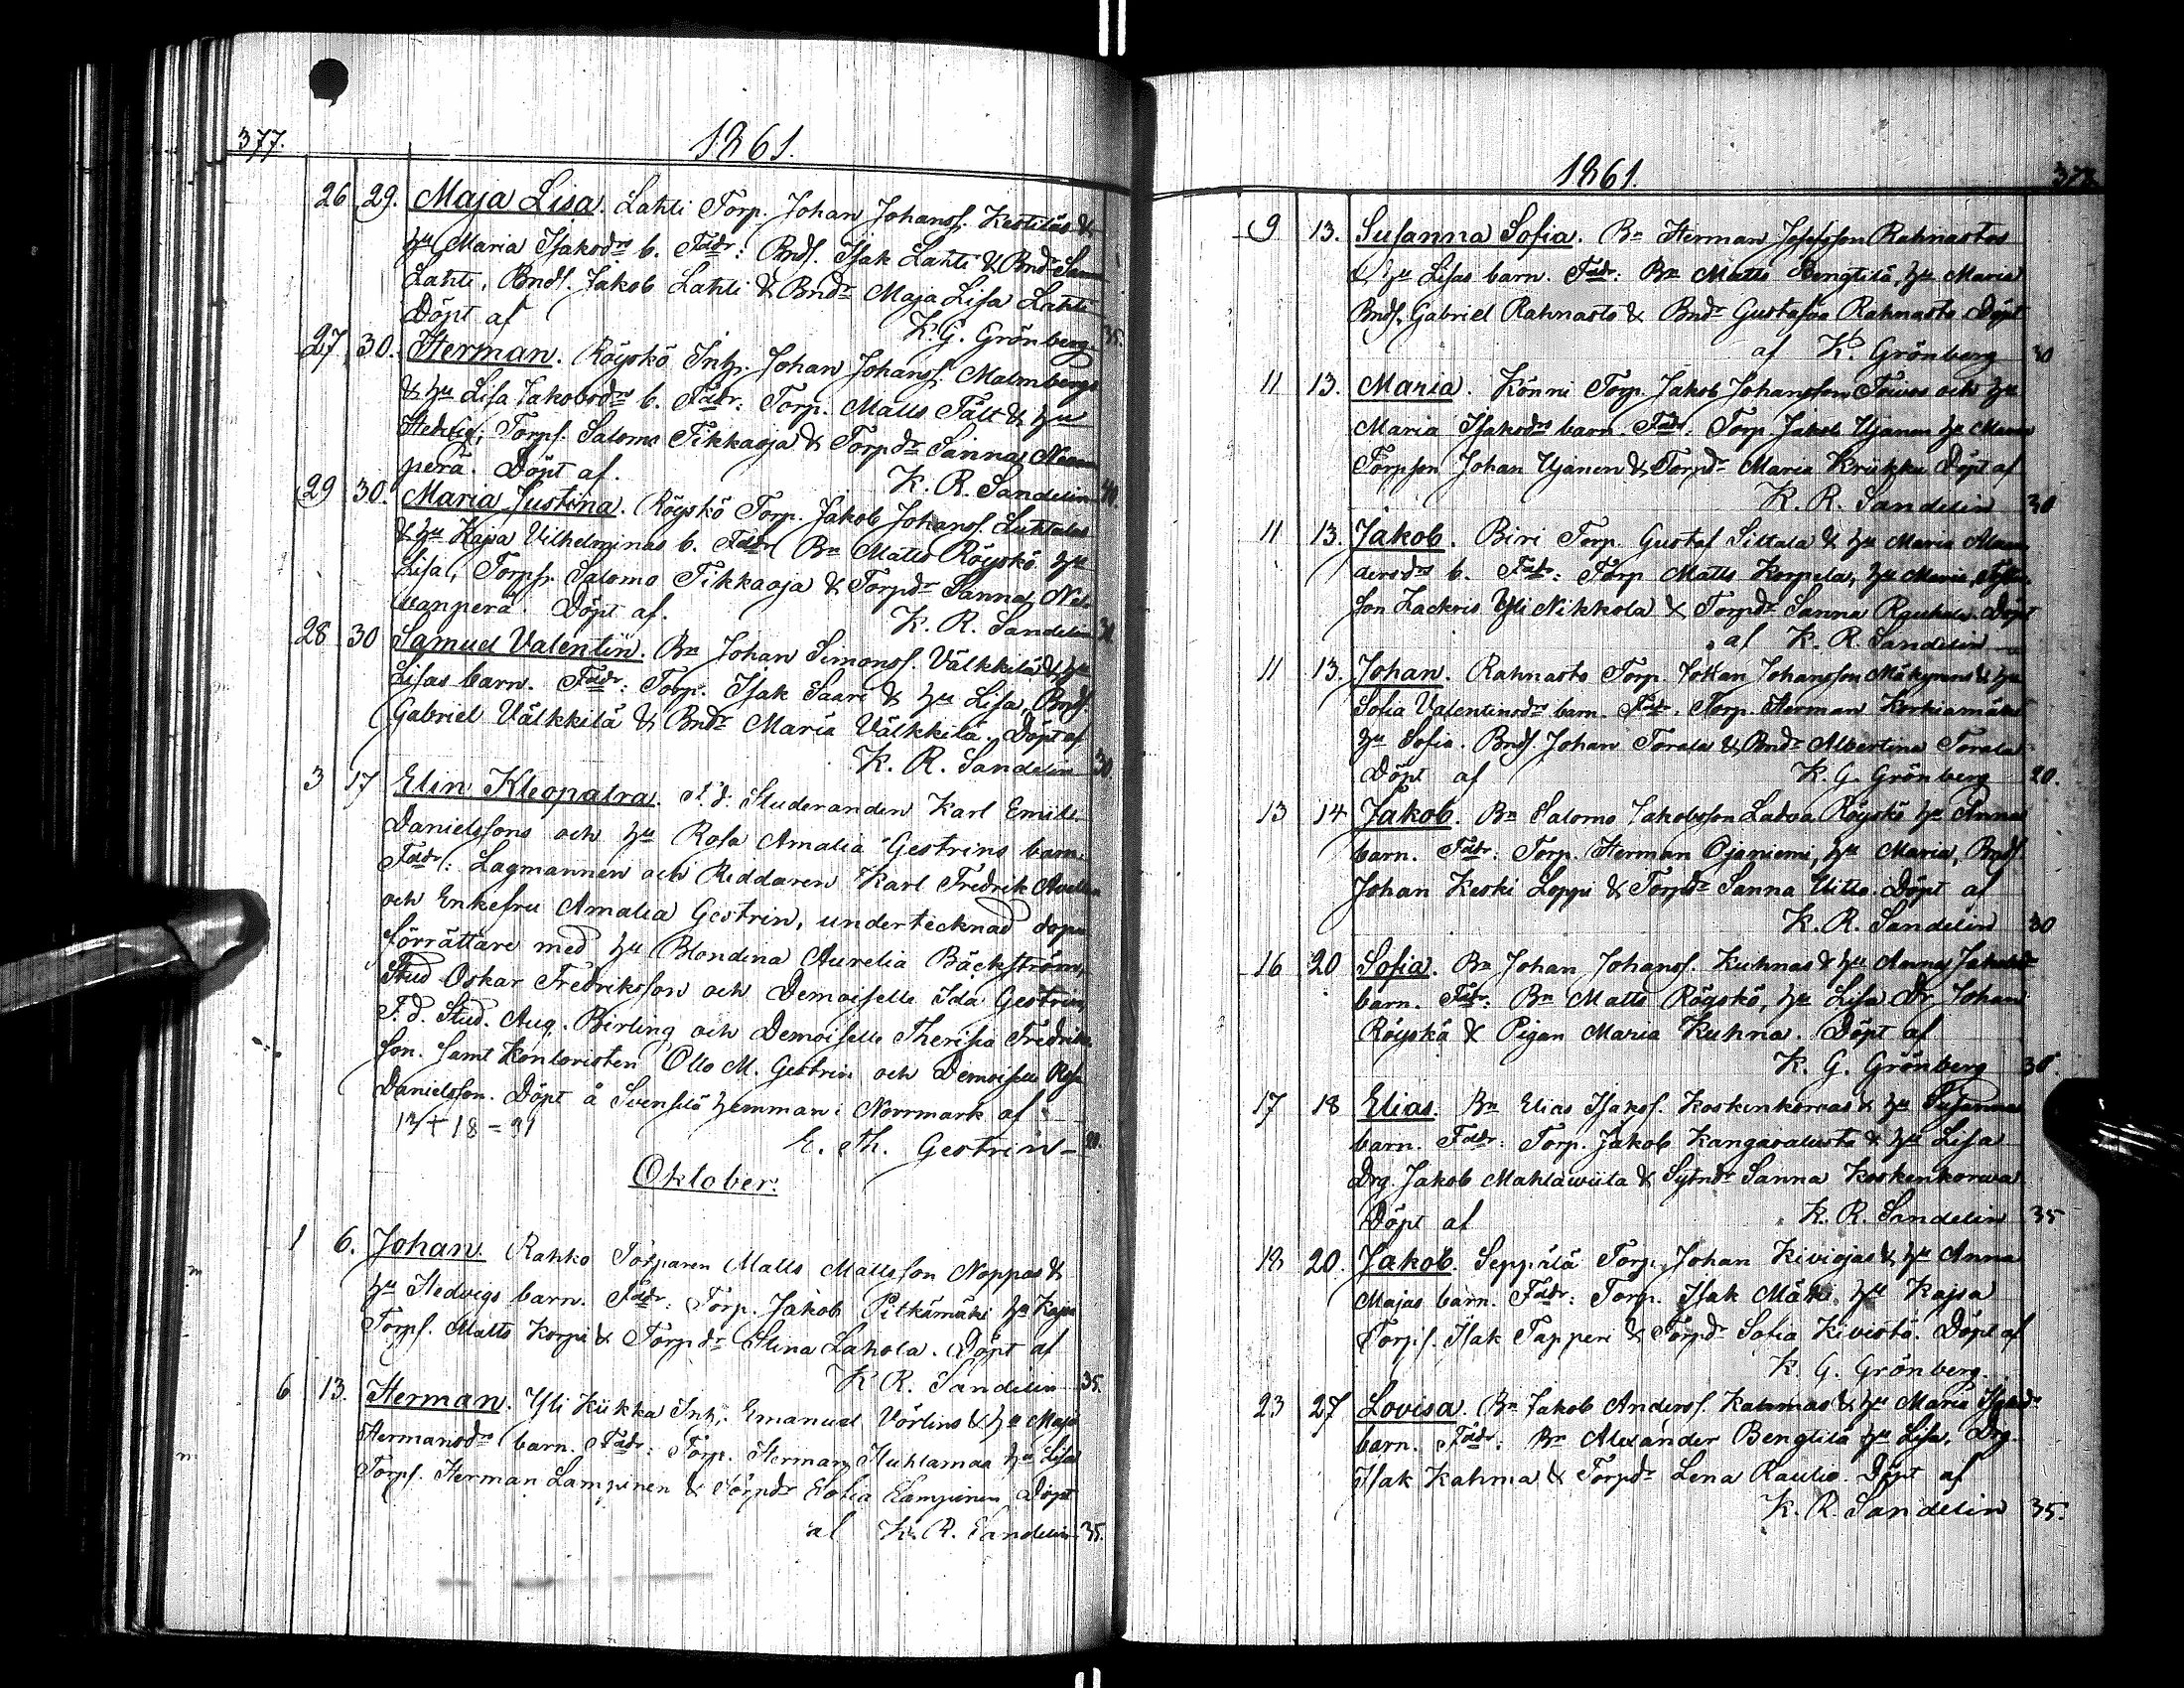 377.
1861.
26 29. Maja Lisa. Lahti Torp. Johan Johanss. Kestiläs &
hu Maria Isaksdrs b. Faddr: Bnds. Isak Lahti & Bndr
Lahti, Bnds. Jakob Lahti & Bndr Maja Lisa Lahti
Döpt af K. G. Grönberg 35.
27 30. Herman. Röyskö Inh. Johan Johanss. Malmbergs
& hu Lisa Jakobsdrs b. Faddr: Torp. Matts Fält & hu
Torps. Salomo Tikkaoja & Torpdr Sanna
perä. Döpt af. K. R. Sandelin 40.
29 30. Maria Justina. Röyskö Torp. Jakob Johanss. Luhtalas
& hu Kajsa Vilhelminas b. Faddr Bn Matts Röyskö hu
Lisa, Torps. Salomo Tikkaoja & Torpdr Sanna
vanperä. Döpt af. K. R. Sandelin 30.
28 30 Samuel Valentin. Bn Johan Simonss. Välkkilä & hu
Lisas barn. Faddr: Torp. Isak Saari & hu Lisa, Bnds
Gabriel Välkkilä & Bndr Maria Välkkilä. Döpt af
K. R. Sandelin 30.
3 17 Elin Kleopatra. f.d. Studeranden Karl Emil
Danielssons och hu Rosa Amalia Gestrins barn.
Faddr: Lagmannen och Riddaren Karl Fredrik
och Enkefru Amalia Gestrin, undertecknad dop
förrättare med hu Blondina Aurelia Bäckström,
Stud Oskar Fredriksson och Demoiselle Ida Gestrin,
F.d. Stud. Aug. Birling och Demoiselle Theresia Fredriks
son. samt Kontoristen Otto M. Gestrin och Demoiselle Rosa
Danielsson. Döpt å Svenslä hemman i Norrmark af
E. Th. Gestrin 20.
13+18=31
Oktober.
1 6. Johan. Rahko Torparen Matts Mattsson Noppas &
hu Hedvigs barn. Faddr: Torp. Jakob Pitkämäki hu Kajsa
Torps. Matts Korpi & Torpdr Stina Lahola. Döpt af
K. R. Sandelin 35.
6 13. Herman. Yli Kükka Inh. Emanuel Vörlins & hu Maja
Hermansdrs barn. Faddr: Torp. Herman Huhtamaa hu Lisa
Torps. Herman Lampinen & Torpdr Sofia Lampinen Döpt
af K. R. Sandelin 35.
1861.
9 13. Susanna Sofia. Bn Herman Josefsson Rahnastos
& hu Lisas barn. Faddr: Bn Matts Bengtilä, hu Maria
Bnds. Gabriel Rahnasto & Bndr Gustafva Rahnasto. Döpt
af K. Grönberg 30
11 13. Maria. Könni Torp. Jakob Johansson och hu
Maria Isaksdrs barn. Faddr: Torp Jakob Ujanen hu Maria
Torpson Johan Ujanen & Torpdr Maria Krükku Döpt af
K. R. Sandelin 30
11 13. Jakob. Biri Torp. Gustaf Siltala & hu Maria
dersdrs b. Faddr: Torp Matts Korpela, hu Maria,
son Zackris Yli Nikkola & Torpdr Sanna Rauhala. Döpt
af K. R. Sandelin
11 13. Johan. Rahnasto Torp. Johan Johansson Mäkynens & hu
Sofia Valentinsdrs barn. Faddr. Torp. Herman Korkiamäki
hu Sofia. Bnds. Johan Torala & Bndr Albertina Torala
Döpt af K. G. Grönberg 20.
13 14 Jakob. Bn Salomo Jakobsson Latva Röyskö hu Annas
barn. Faddr: Torp. Herman Ojaniemi, hu Maria, Bnds
Johan Keski Loppi & Torpdr Sanna Uitto. Döpt af
K. R. Sandelin 30
16 20 Sofia. Bn Johan Johanss. Kuhnas & hu Anna Jakobsdr
barn. Faddr: Bn Matts Röyskö, hu Lisa Dr. Johan
Röyskö & Pigan Maria Kuhna. Döpt af
K. G. Grönberg 30.
17 18 Elias. Bn Elias Isakss. Koskenkorvas & hu Susannas
barn. Faddr: Torp. Jakob Kangasalusta & hu Lisa
Drg. Jakob Mahlawiita & Sytndr Sanna Koskenkorwa
Döpt af K. R. Sandelin 35
18 20. Jakob. Seppälä Torp. Johan Kiviojas & hu Anna
Majas barn. Faddr: Torp. Isak Mäki, hu Kajsa
Torps. Isak Tapperi & Torpdr Sofia Kivistö. Döpt af
K. G. Grönberg.
23 27 Lovisa. Bn Jakob Anderss. Kahmas & hu Maria
barn. Faddr: Bn Alexander Bengtilä hu Lisa, Drg.
Isak Kahma & Torpdr Lena Raulio. Döpt af
K. R. Sandelin 35.